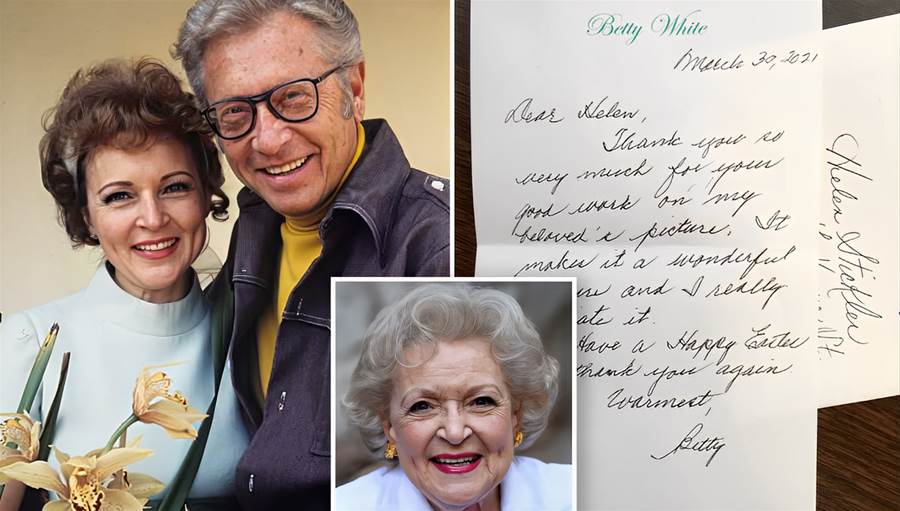 Betty White
March 30, 2021
Dear Helen,
Thank you so
very much for your
good work on my
beloved's picture. It
makes it a wonderful
ure and I really
ate it.
Have a Happy Easter
thank you again
Warmest,
Betty
Helen Stickler